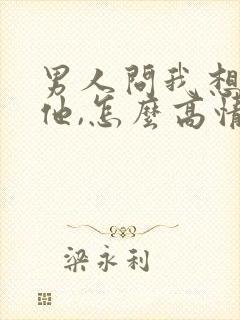 男人問我想
他,怎麼高情
梁永利